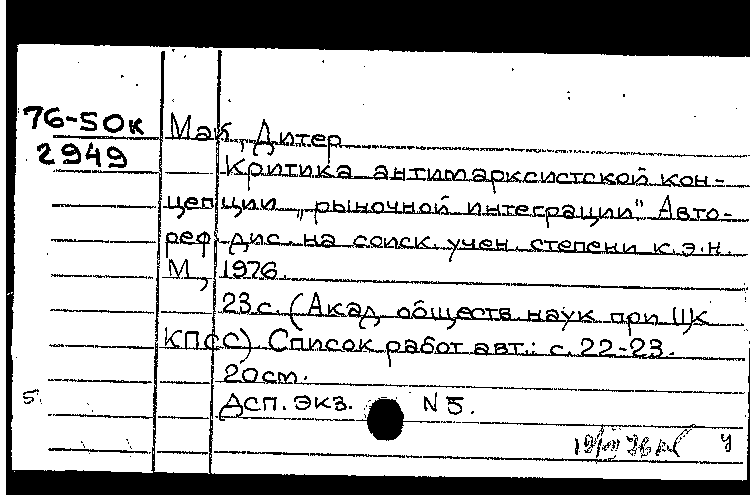 76-50к
2949
Мак, Дитер
Критика антимарксистской кон-
цепции „рыночной интеграции" Авто-
реф. дис. на соиск. учен. степени к.э.н.
М, 1976.
23с. (Акад. обществ. наук при ЦК
КПСС). Список работ авт.: с. 22-23.
20см.
5.
Дсп. экз. N 5.